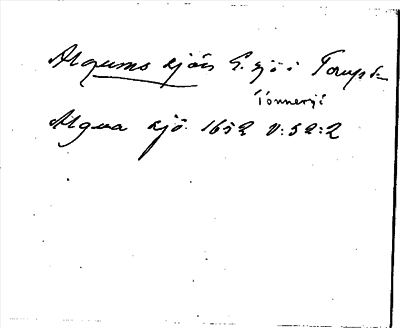 Algums sjön G. sjö i Torup sn
Tönnersjö
Algua sjö 1652 V:52:2